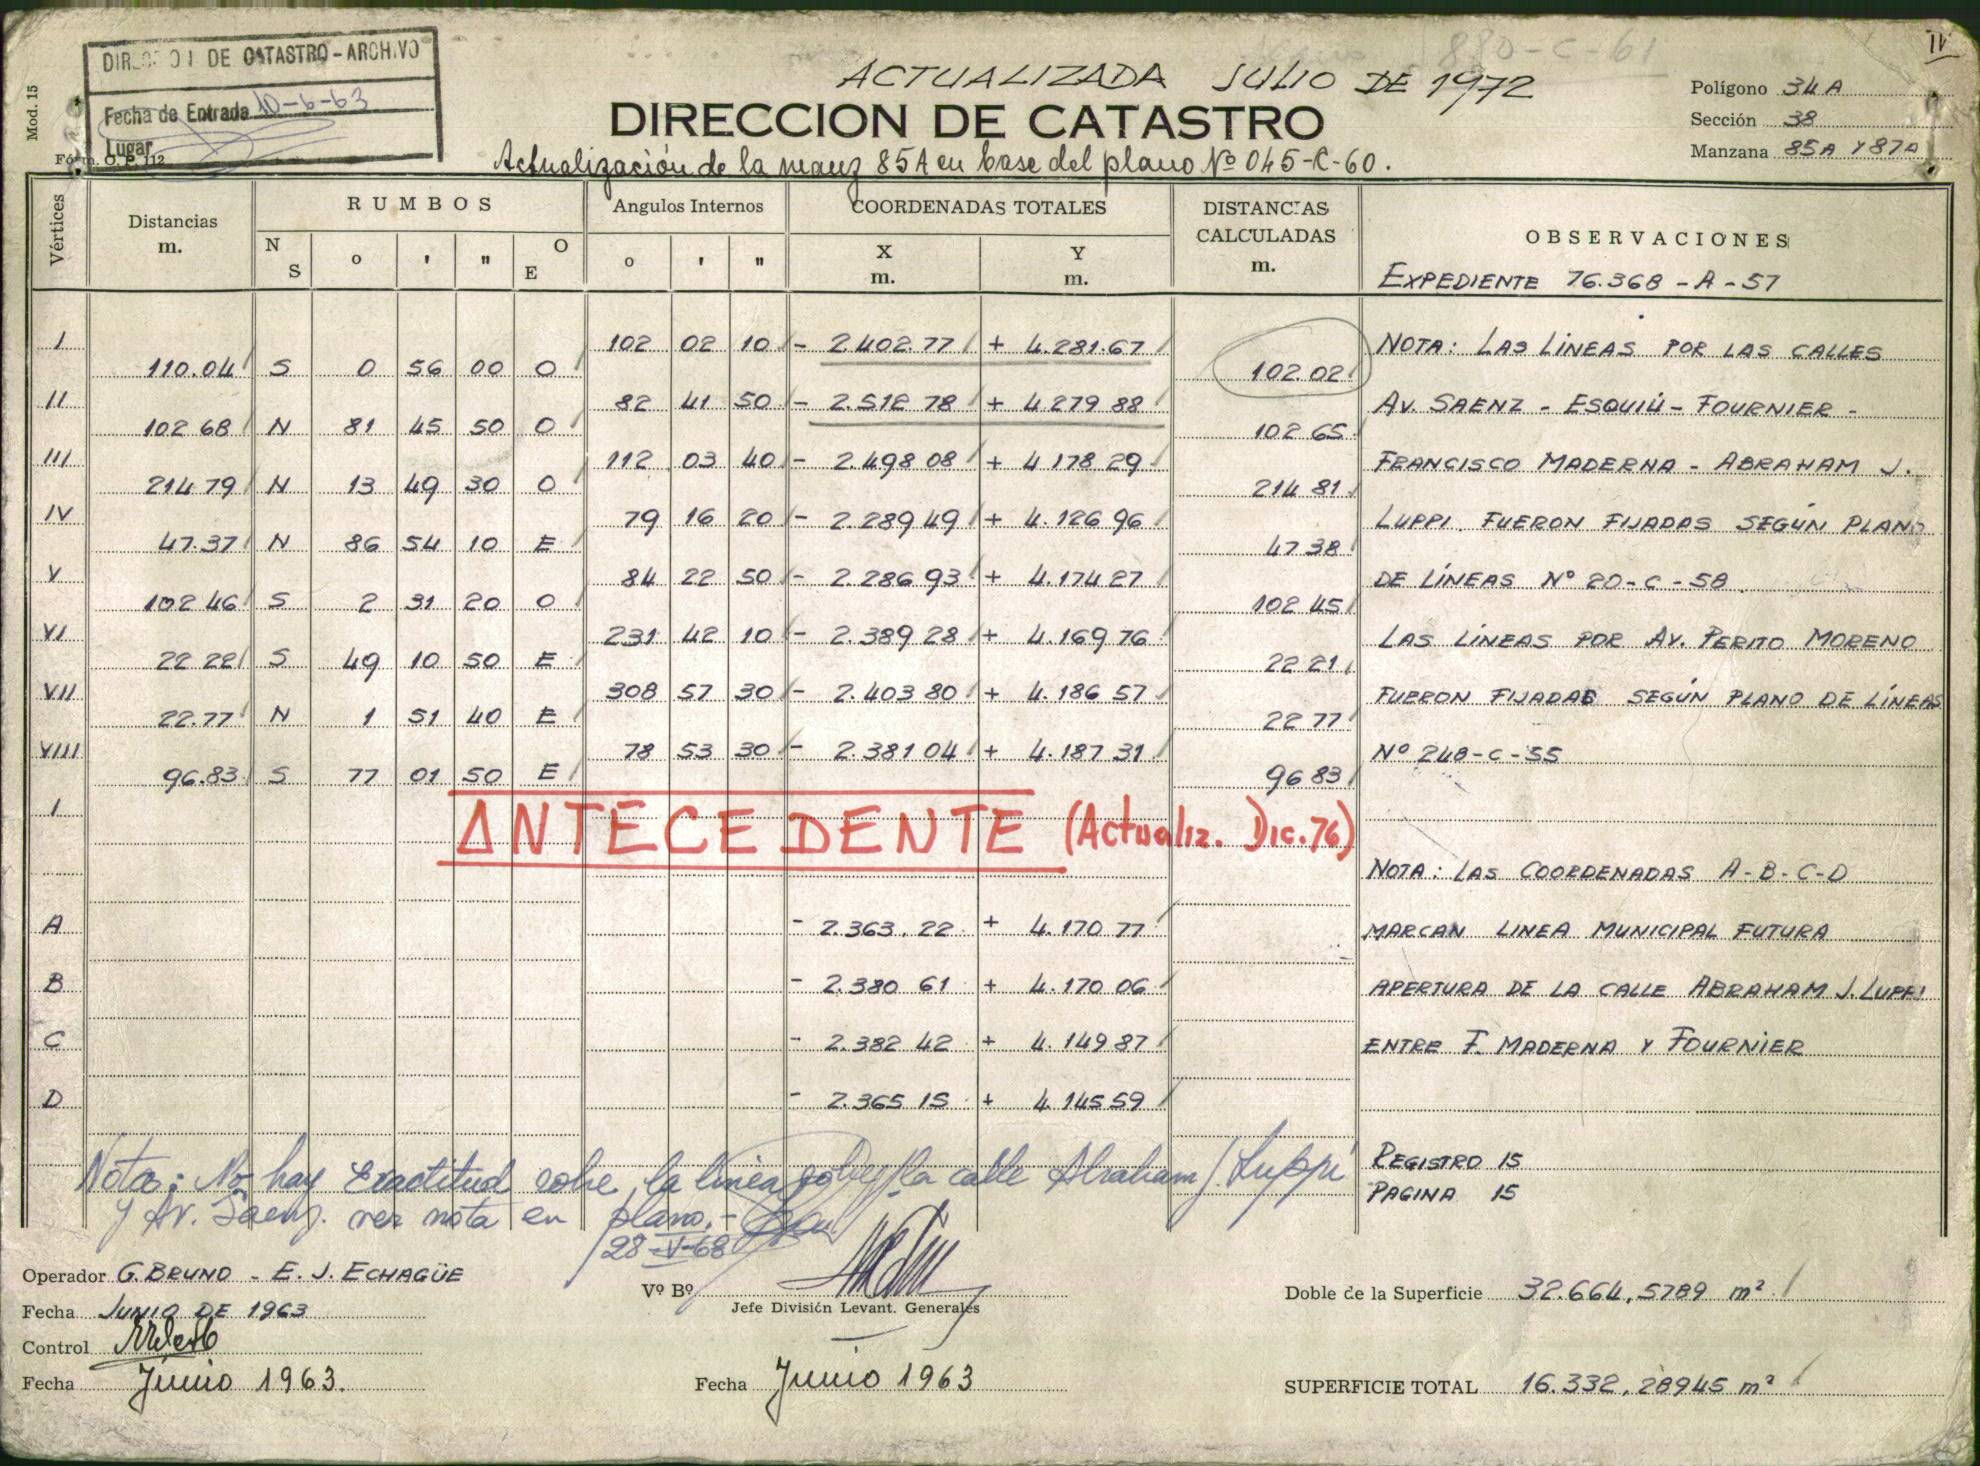 880-C-61
IV
DIRECCION DE CATASTRO-ARCHIVO
Fecha de Entrada 10-6-63
Lugar
Mod. 15
Fórm. O. P. 112
ACTUALIZADA JULIO DE 1972
DIRECCION DE CATASTRO
Actualización de la manz 85A en base del plano Nº 045-C-60.
Polígono 34A
Sección 38
Manzana 85A Y 87A
Vértices Distancias m. RUMBOS Angulos Internos COORDENADAS TOTALES DISTANCIAS CALCULADAS m. OBSERVACIONES
N S o ' " O E o ' " X m. Y m.
EXPEDIENTE 76.368-A-57
I 102 02 10 - 2402.77 + 4.281.67 NOTA: LAS LÍNEAS POR LAS CALLES
110.04 S 0 56 00 O 102.02
II 82 41 50 - 2.512 78 + 4279 88 AV. SAENZ - ESQUIÚ - FOURNIER -
102 68 N 81 45 50 O 102 65
III 112 03 40 - 2.498 08 + 4178 29 FRANCISCO MADERNA - ABRAHAM J.
214 79 N 13 49 30 O 214 81
IV 79 16 20 - 2.289 49 + 4.126 96 LUPPI. FUERON FIJADAS SEGÚN PLANO
47.37 N 86 54 10 E 47 38
V 84 22 50 - 2.286 93 + 4.174 27 DE LÍNEAS Nº 20-C-58
102 46 S 2 31 20 O 102 45
VI 231 42 10 - 2.389 28 + 4.169 76 LAS LÍNEAS POR AV. PERITO MORENO
22 22 S 49 10 50 E 22 21
VII 308 57 30 - 2.403 80 + 4.186 57 FUERON FIJADAS SEGÚN PLANO DE LÍNEAS
22.77 N 1 51 40 E 22 77
VIII 78 53 30 - 2.381 04 + 4.187 31 Nº 248-C-55
96.83 S 77 01 50 E 96 83
I
ANTECEDENTE (Actualiz. Dic.76)
NOTA: LAS COORDENADAS A-B-C-D
A - 2.363.22 + 4.170 77 MARCAN LINEA MUNICIPAL FUTURA
B - 2.380 61 + 4.170 06 APERTURA DE LA CALLE ABRAHAM J. LUPPI
C - 2.382 42 + 4.149 87 ENTRE F. MADERNA Y FOURNIER
D - 2.365 15 + 4.145 59
Nota: No hay Exactitud sobre la linea sobre la calle Abraham J. Luppi
y Av. Saenz. ver nota en plano.-
28-V-68
REGISTRO 15
PAGINA 15
Operador G. BRUNO - E. J. ECHAGÜE
Fecha JUNIO DE 1963
Control
Fecha Junio 1963.
Vº Bº
Jefe División Levant. Generales
Fecha Junio 1963
Doble de la Superficie 32.664,5789 m²
SUPERFICIE TOTAL 16.332,28945 m²